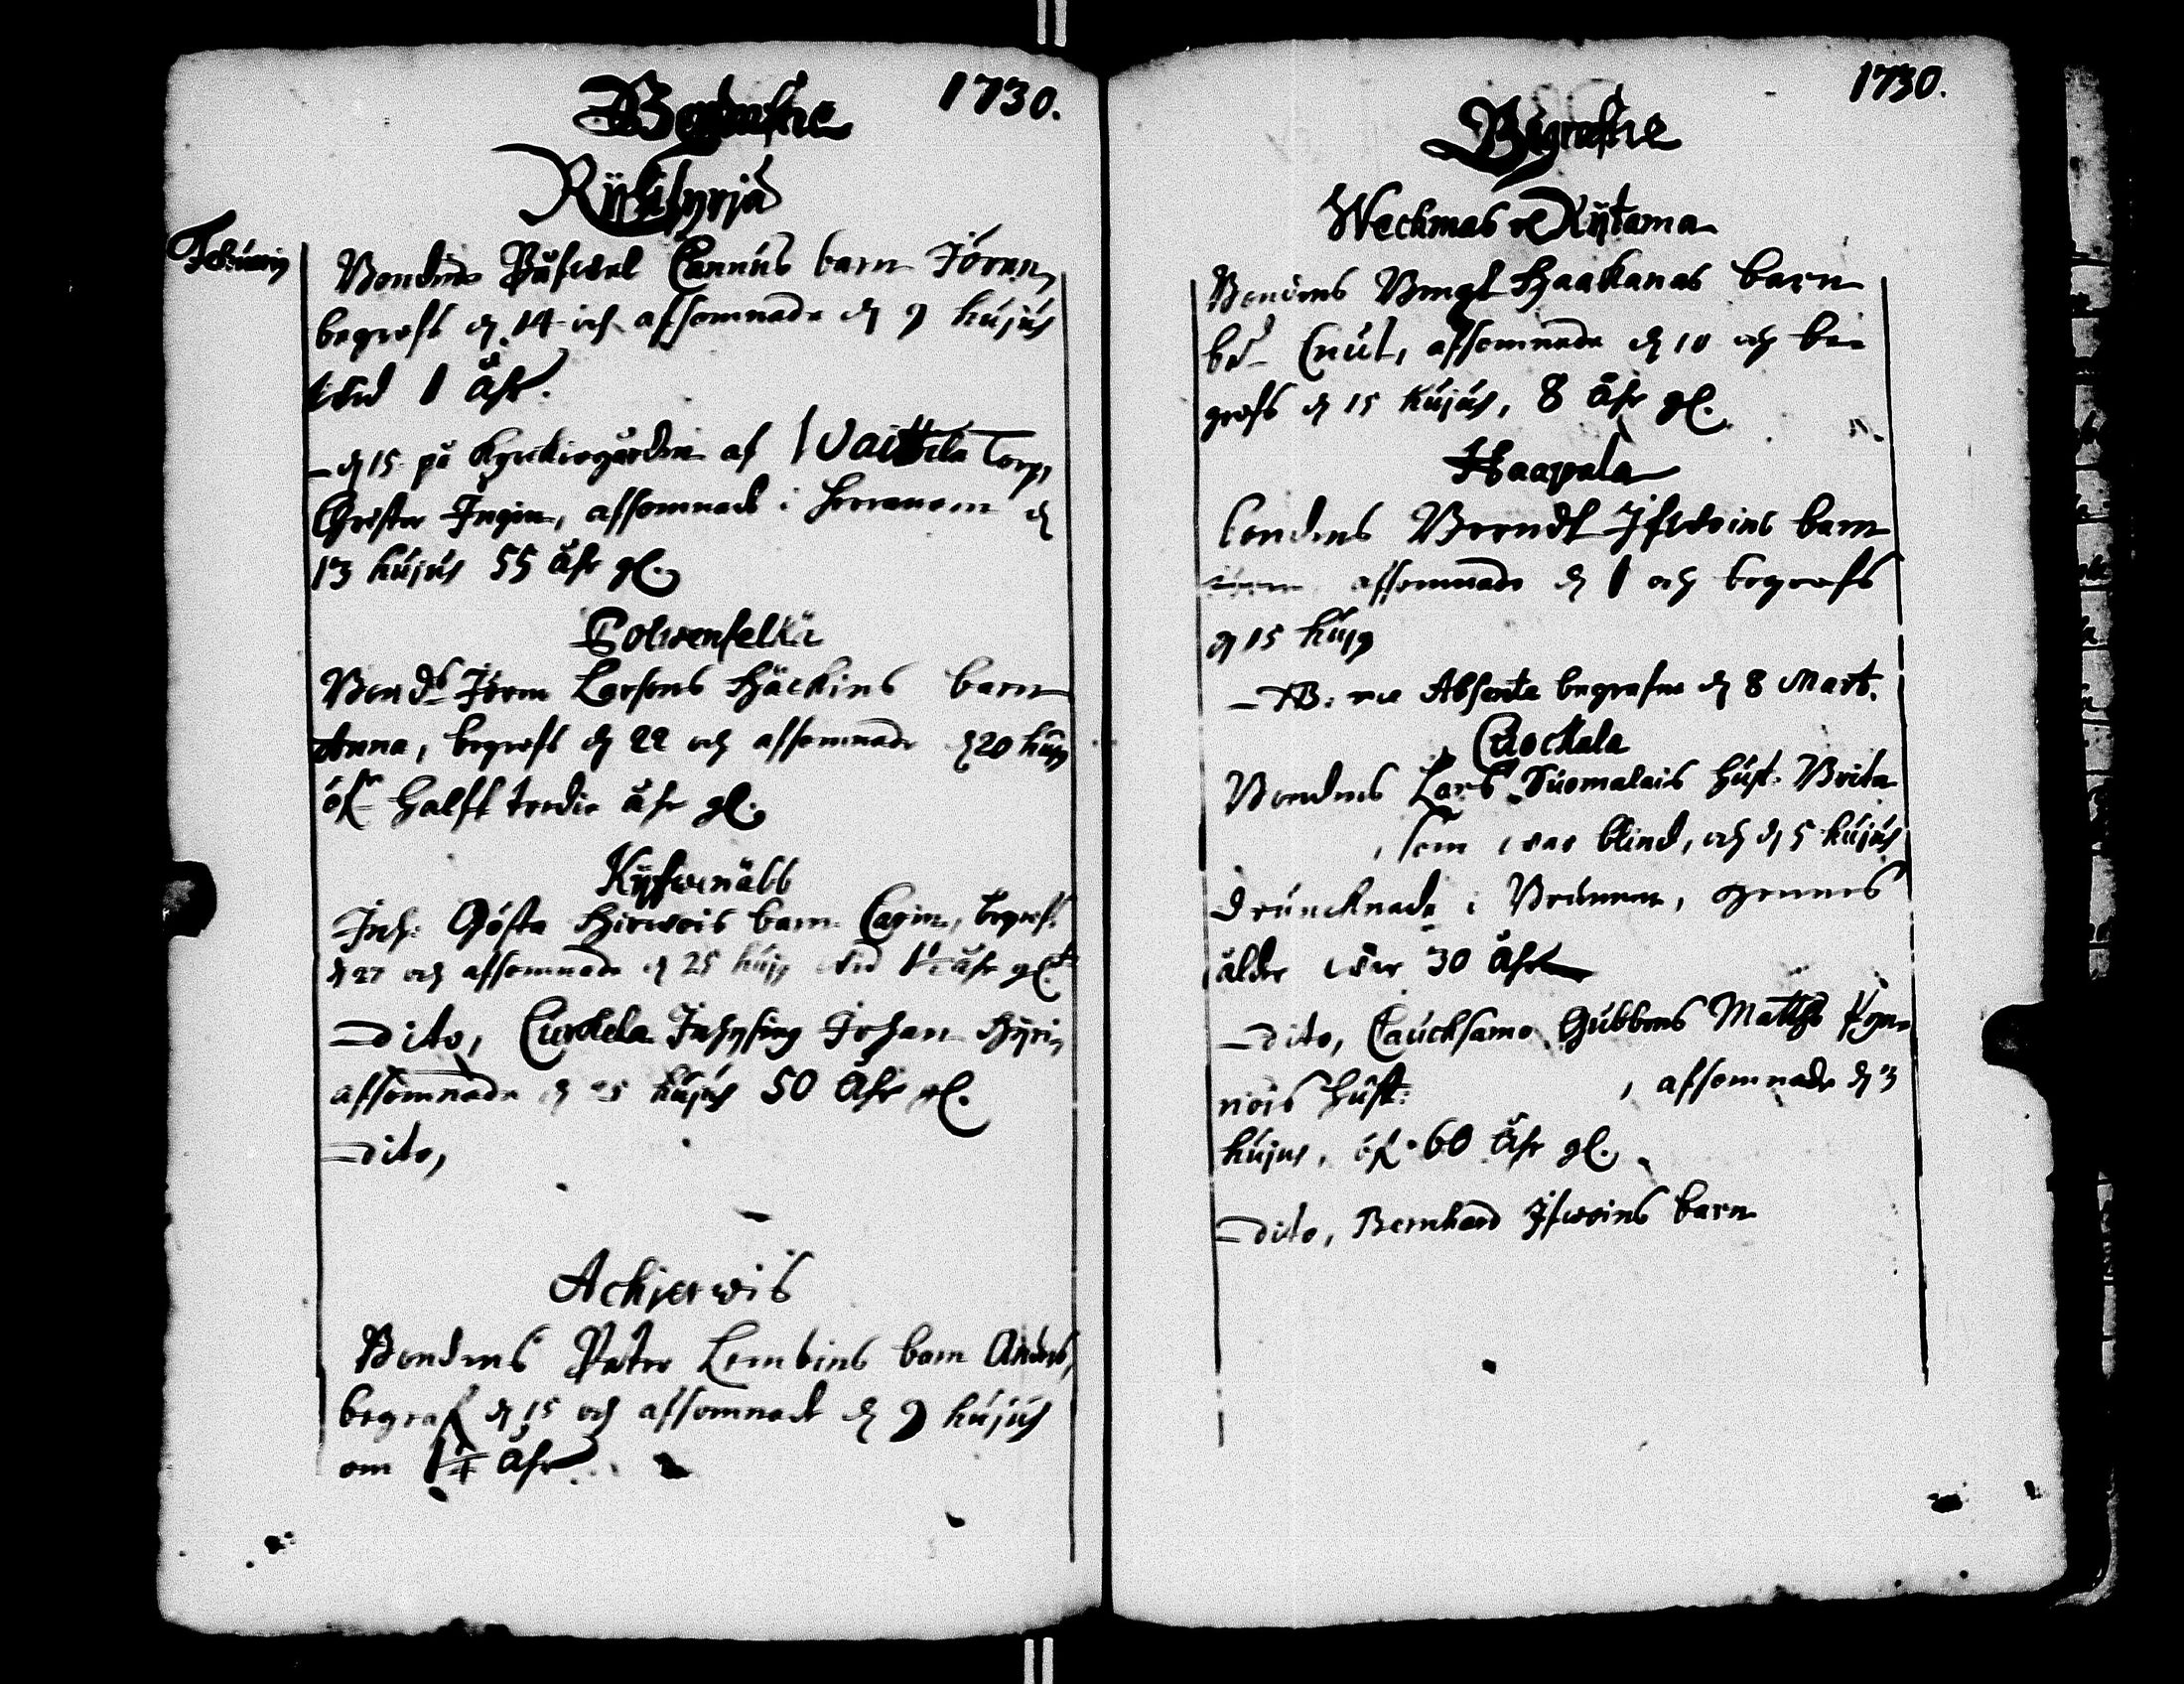 1730.
Begrafne
Februarij
Bondens Påfwal Cannus barn Jören,
begrofs d. 14 och afsomnade d. 9 hujus
wid 1 åhr.
- d. 15 på Kyrkiogården af Waittila Torp,
Christer afsomnade i d.
13 hujus 55 åhr gl.
Polwenselkä
Bond:s Jören Larsons Häckins barn
Anna, begrofs d. 22 och afsomnade d. 20 huj:
öf:r halft tredie åhr gl.
Kyfwenäbb
Inh: Gösta Hirwois barn Carin, begrofs
d. 27 och afsomnade d. 25 huj: wid åhr gl.
Dito, Curkela Inhysing Johan Hyri,
afsomnade d. 25 hujus 50 åhr gl.
Dito,
Ackjerwis
Bondens Peter Lembins barn Anders,
begrafs d. 15 och afsomnade d. 9 hujus
om 1 1/4 åhr
1730.
Begrafne
Wechmas el Kytama
Bondens Bengt Haakanas barn
Cnut, afsomnade d. 10 och be-
grofs d. 15 hujus, 8 åhr gl.
Haapala
Bondens Berndt Ifwoins barn
afsomnade d. 1 och begrofs
d. 15 hujus
- NB: me Absente begrafne d. 8 Mart.
Cuockala
Bondens Lars Suomalais hust: Brita
, som war blind, och d. 5 hujus
druncknade i Brunnen, hennes
ålder war 30 åhr
Dito, Caucksamo Gubbens Matths
nois hust: , afsomnade d. 3
hujus, öf:r 60 åhr gl.
Dito, Bernhard Ifwoins barn